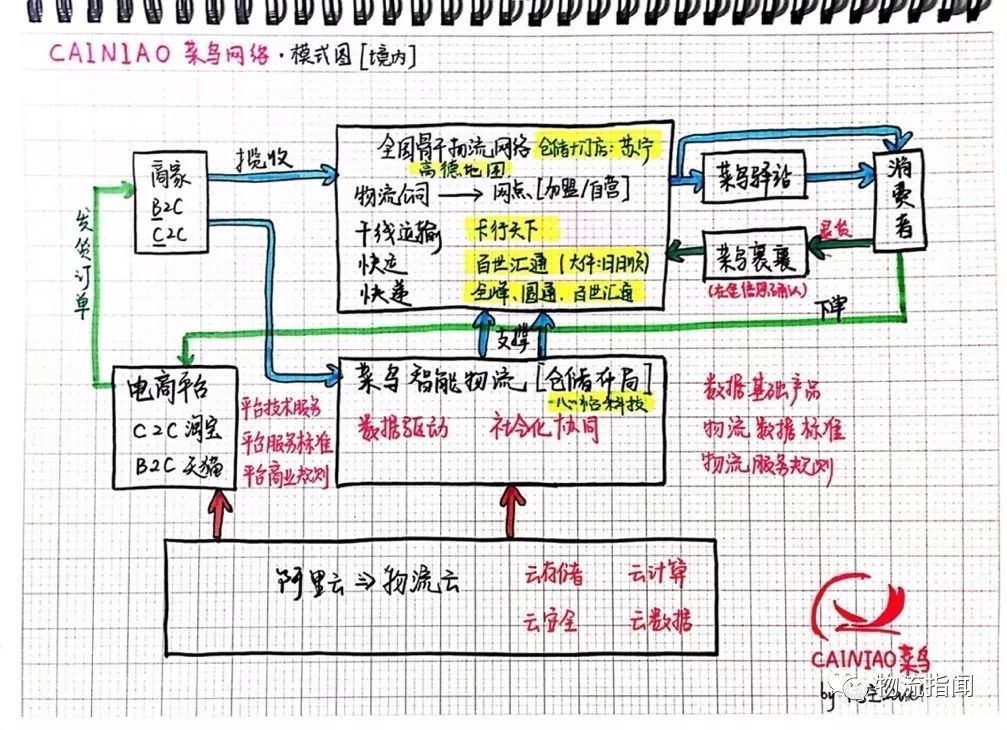 CAINIAO 菜鸟网络·模式图[境内]
商家
B2C
C2C
揽收
全国骨干物流网络 仓储+门店:苏宁
高德地图
物流公司 → 网点[加盟/自营]
干线运输 卡行天下
快运 百世汇通(大件:日日顺)
快递 全峰、圆通、百世汇通
菜鸟驿站
消费者
退货
菜鸟裹裹
下单
发货订单
支撑
电商平台
C2C 淘宝
B2C 天猫
平台技术服务
平台服务标准
平台商业规则
菜鸟智能物流[仓储布局]
心怡科技
数据驱动 社会化协同
数据基础产品
物流数据标准
物流服务规则
阿里云⇒物流云
云存储 云计算
云安全 云数据
CAINIAO菜鸟
by
物流指闻